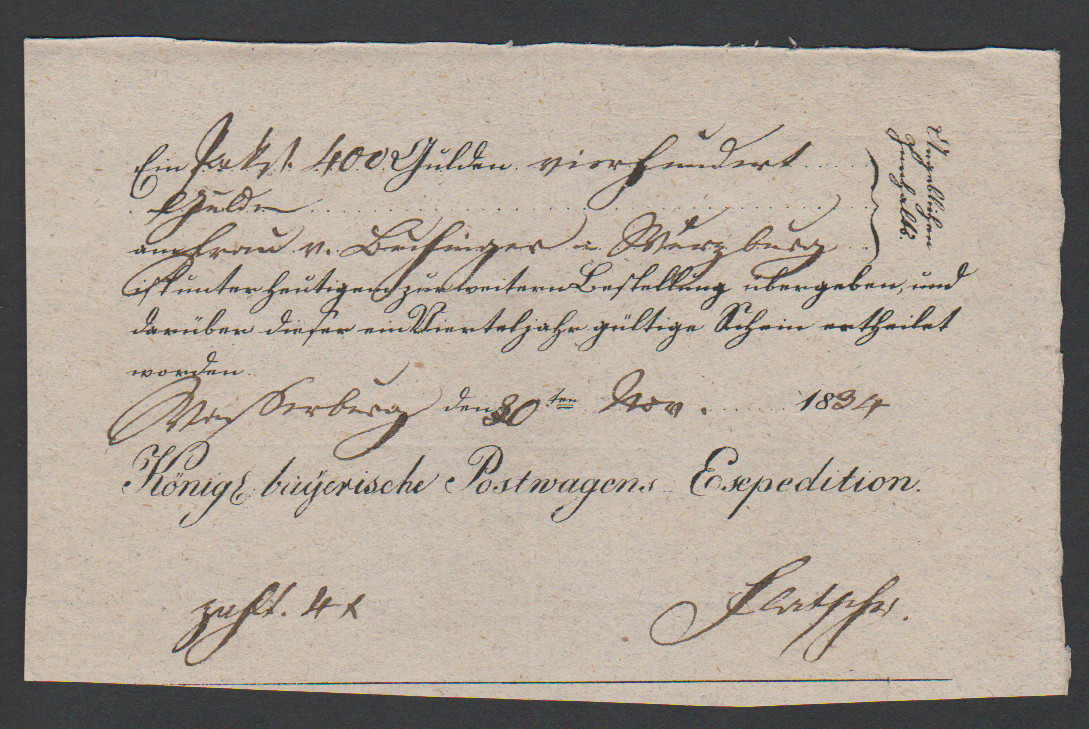 Ein Paket 400 Gulden vierhundert
Gulden
an Frau v. Bechinger in Würzburg
ist unter heutigem zur weitern Bestellung übergeben, und
darüber dieser ein Vierteljahr gültige Schein ertheilet
worden.
Wasserburg den 30ten Nov. 1834
Königl. baÿerische Postwagens Expedition.
zahlt. 4 x
Angeblichen
Innhalts.